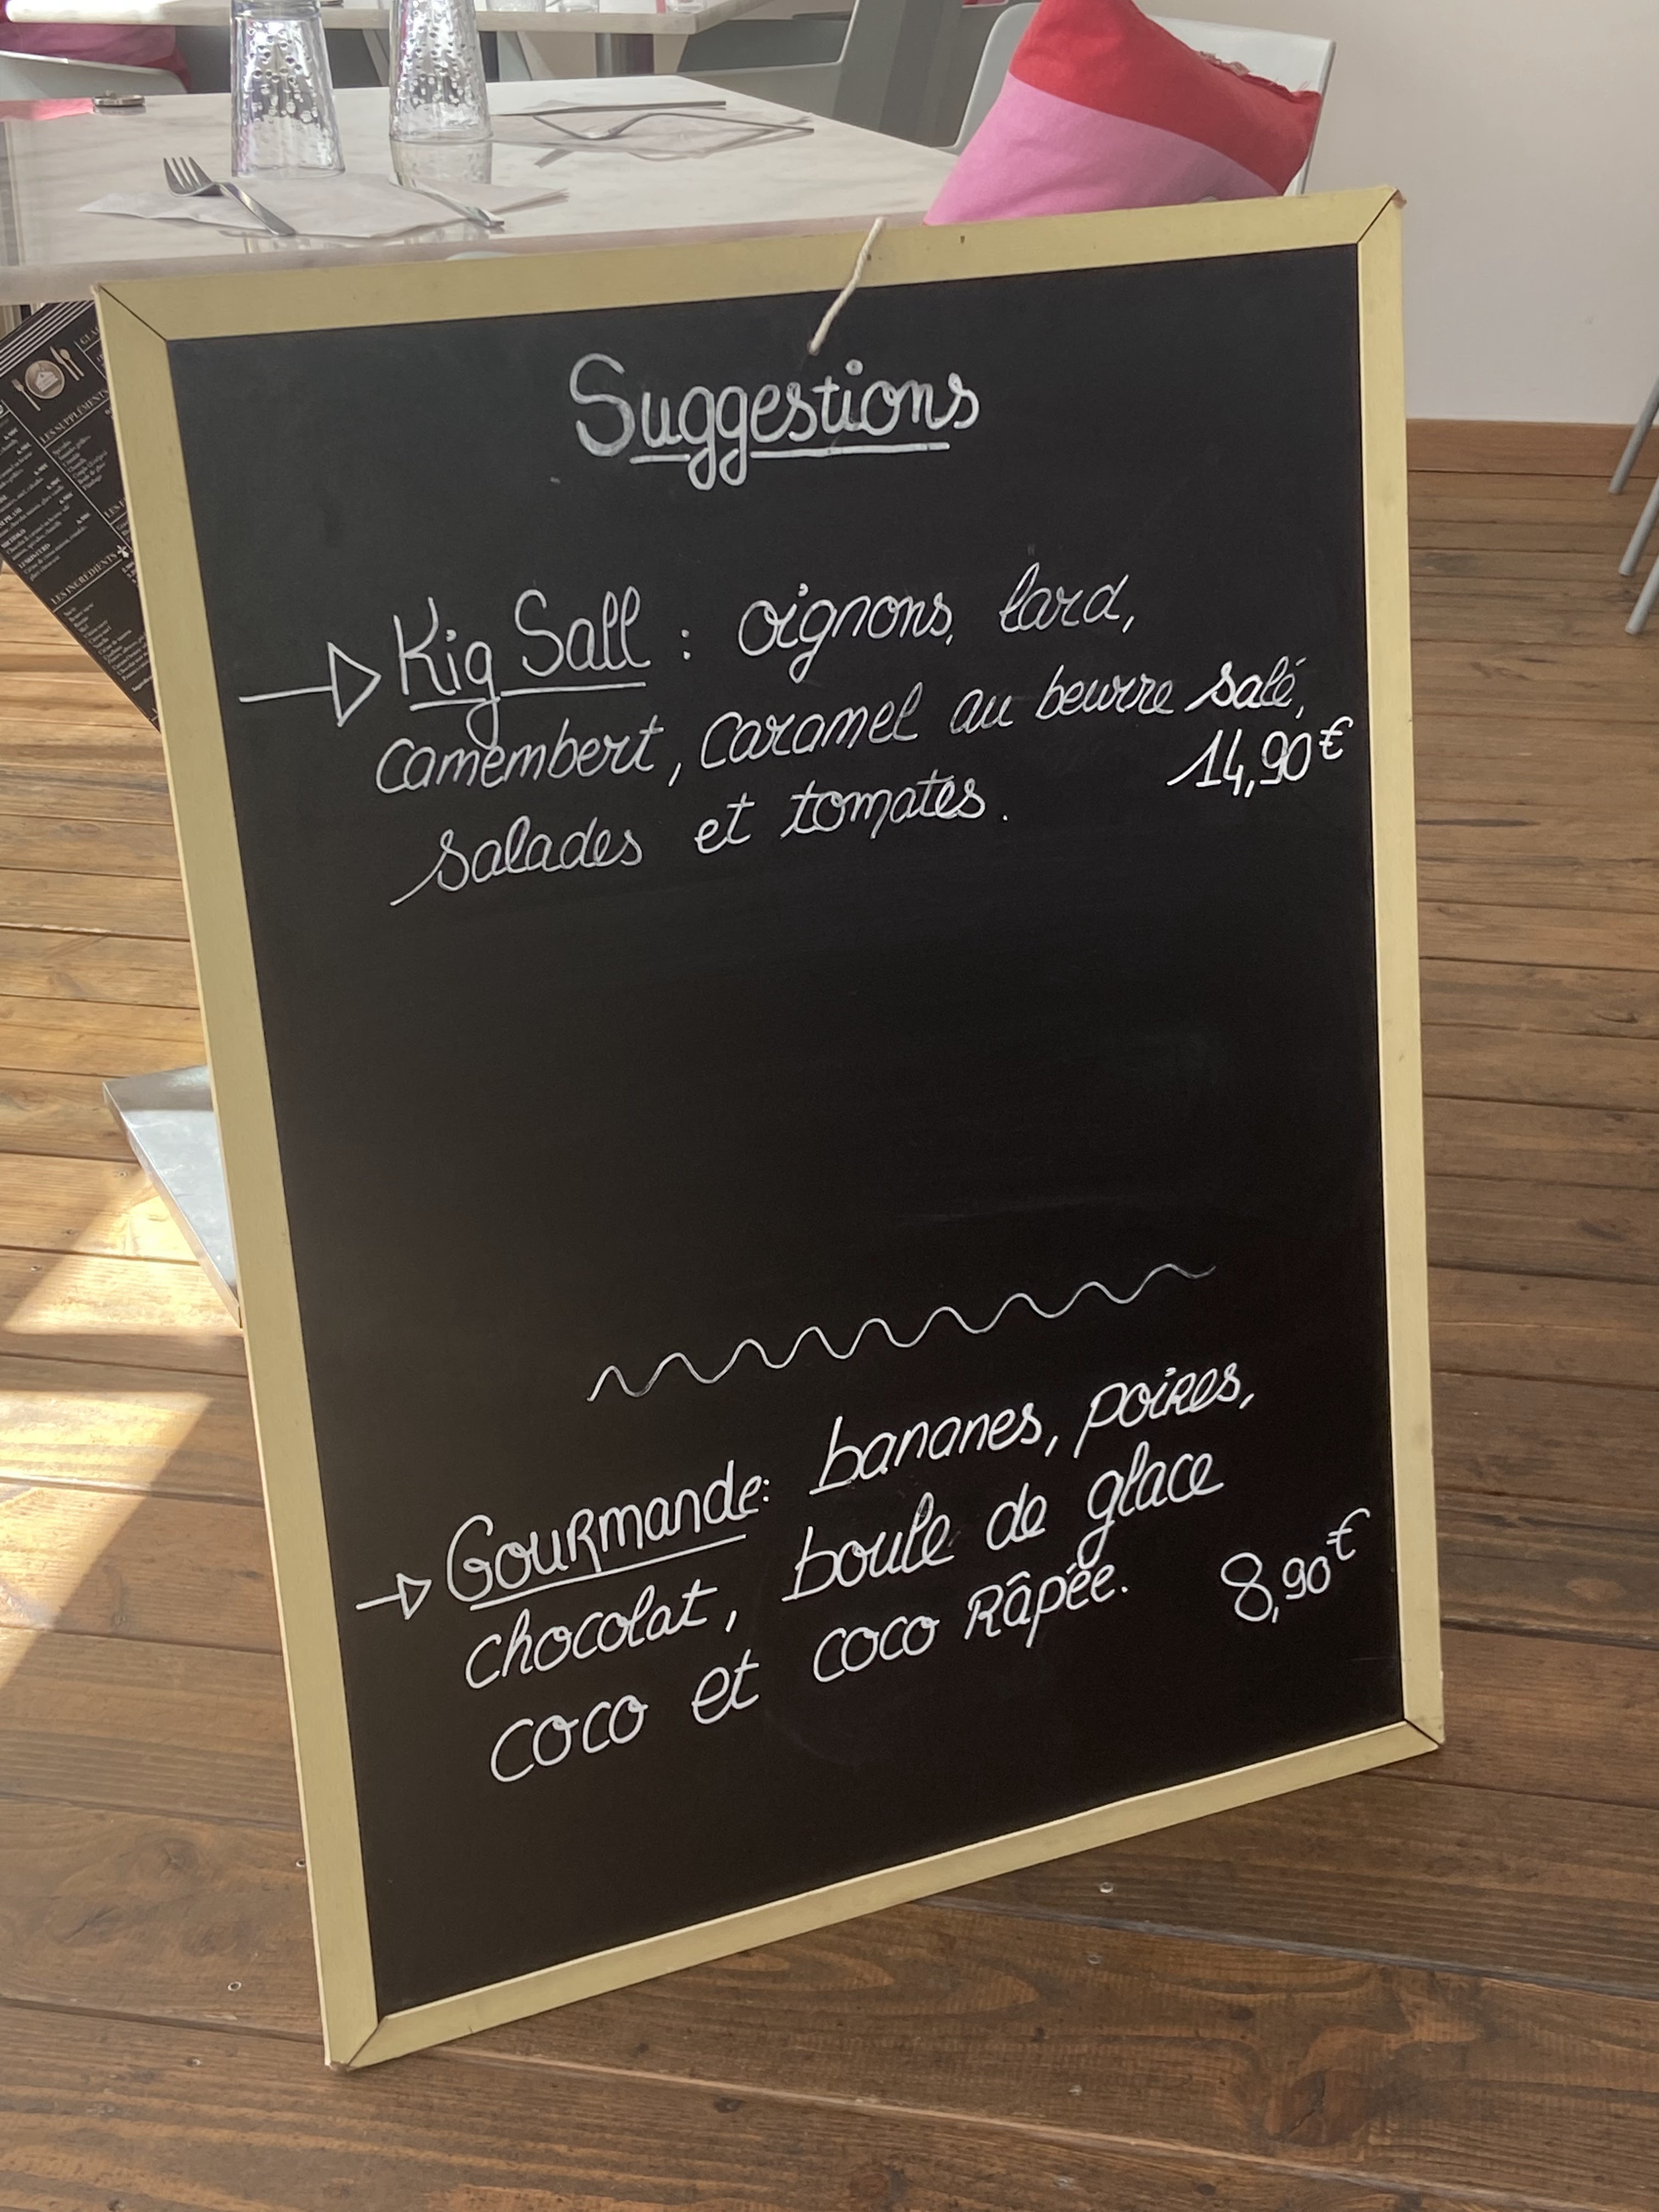 Suggestions
Kig Sall : oignons, lard,
camembert, caramel au beurre salé,
14,90€
salades et tomates.
Gourmande: bananes, poires,
chocolat, boule de glace
coco et coco Râpée.
8,90€
LES SUPPLÉMENTS
LES INGRÉDIENTS